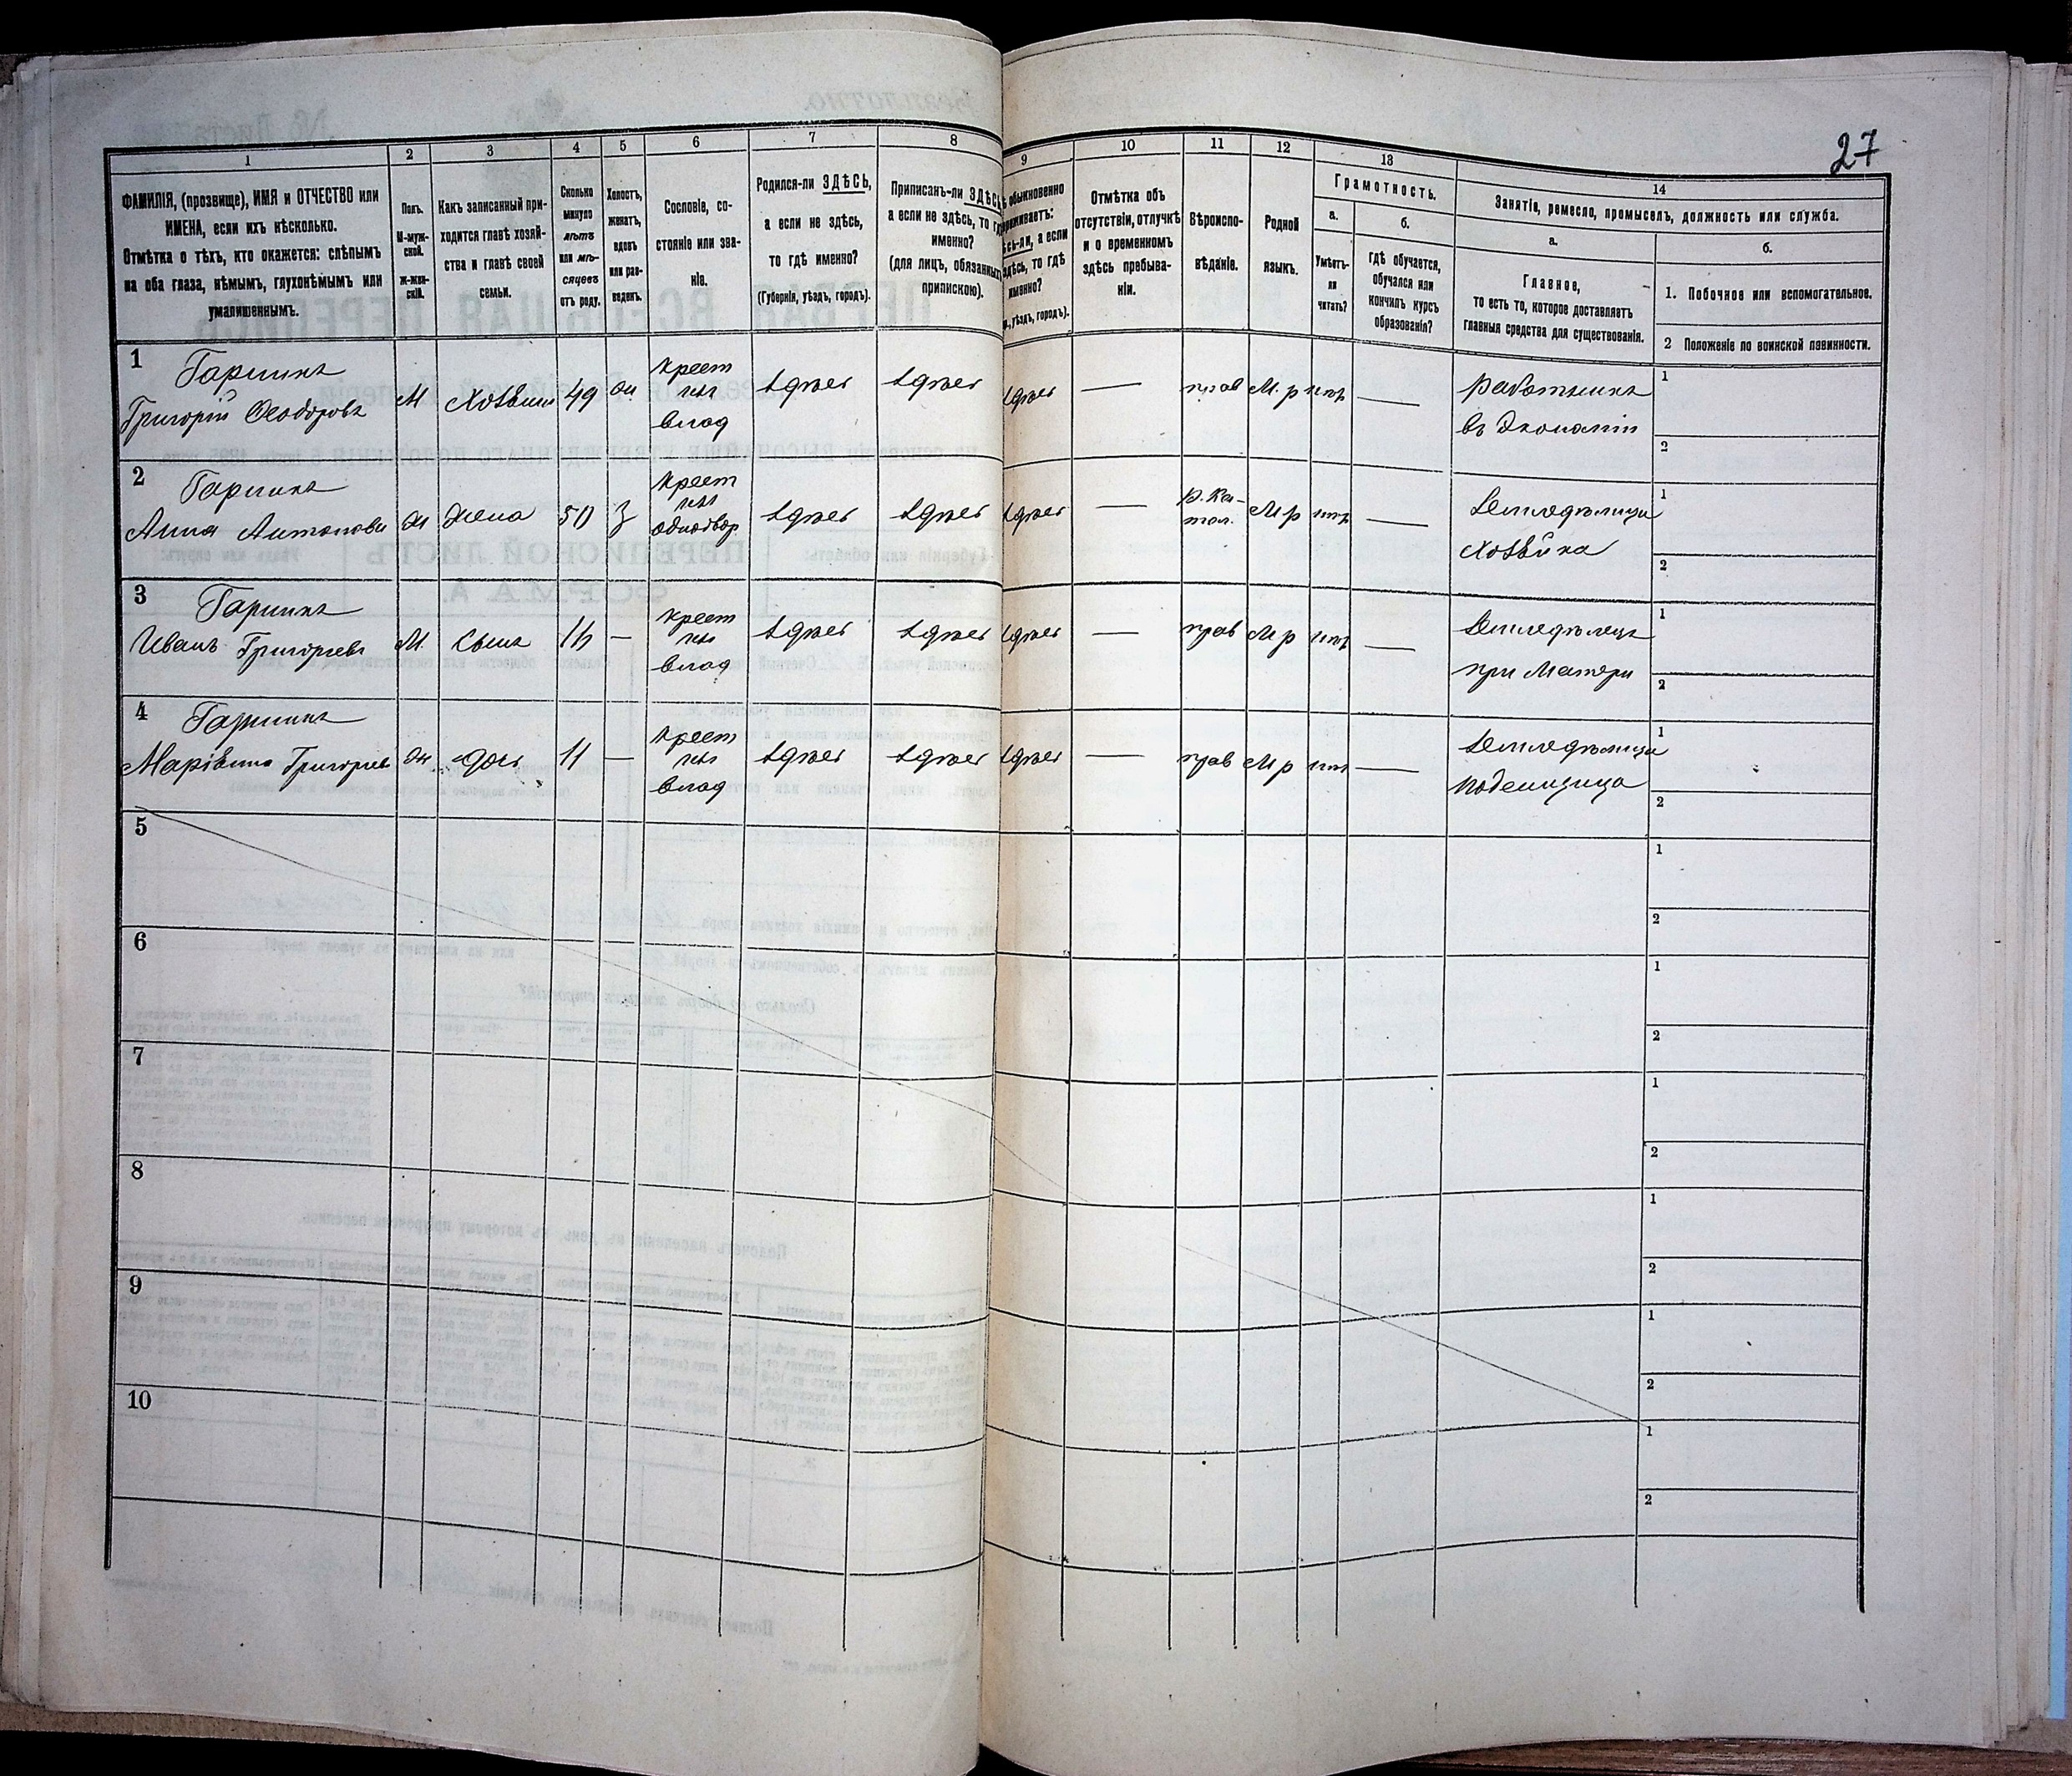 27
1 2 3 4 5 6 7 8 9 10 11 12 13 14
ФАМИЛІЯ, (прозвище), ИМЯ и ОТЧЕСТВО или
ИМЕНА, если ихъ нѣсколько.
Отмѣтка о тѣхъ, кто окажется: слѣпымъ
на оба глаза, нѣмымъ, глухонѣмымъ или
умалишеннымъ.
Полъ.
М-муж-
ской.
ж-жен-
скій.
Какъ записанный при-
ходится главѣ хозяй-
ства и главѣ своей
семьи.
Сколько
минуло
лѣтъ
или мѣ-
сяцевъ
отъ роду.
Холостъ,
женатъ,
вдовъ
или раз-
веденъ.
Сословіе, со-
стояніе или зва-
ніе.
Родился-ли ЗДѢСЬ,
а если не здѣсь,
то гдѣ именно?
(Губернія, уѣздъ, городъ).
Приписанъ-ли ЗДѢСЬ,
а если не здѣсь, то гдѣ
именно?
(для лицъ, обязанныхъ
припискою).
обыкновенно
а если
здѣсь, то гдѣ
именно?
уѣздъ, городъ).
Отмѣтка объ
отсутствіи, отлучкѣ
и о временномъ
здѣсь пребыва-
ніи.
Вѣроиспо-
вѣданіе.
Родной
языкъ.
Грамотность.
а. б.
Умѣетъ-
ли
читать?
гдѣ обучается,
обучался или
кончилъ курсъ
образованія?
Занятіе, ремесло, промыселъ, должность или служба.
а. б.
Главное,
то есть то, которое доставляетъ
главныя средства для существованія.
1. Побочное или вспомогательное.
2 Положеніе по воинской повинности.
1
Григорій Ѳеодоровъ
М Хозяинъ 49 жн
Крест
влад
здѣсь здѣсь здѣсь — прав М.р —
работникъ
въ Экономіи
1
2
2
Анна Антонова
ж Жена 50 З
Крест
однодвор
здѣсь здѣсь здѣсь —
р. ка-
тол.
М р —
Земледѣлица
Хозяйка
1
2
3
Иванъ Григорьевъ
М. Сынъ 16 —
Крест
влад
здѣсь здѣсь здѣсь — прав М р —
Земледѣлецъ
при Матери
1
2
4
Григорьев
ж дочь 11 —
Крест
влад
здѣсь здѣсь здѣсь — прав М р —
Земледѣлица
поденщица
1
2
5
1
2
6
1
2
7
1
2
8
1
2
9
1
2
10
1
2